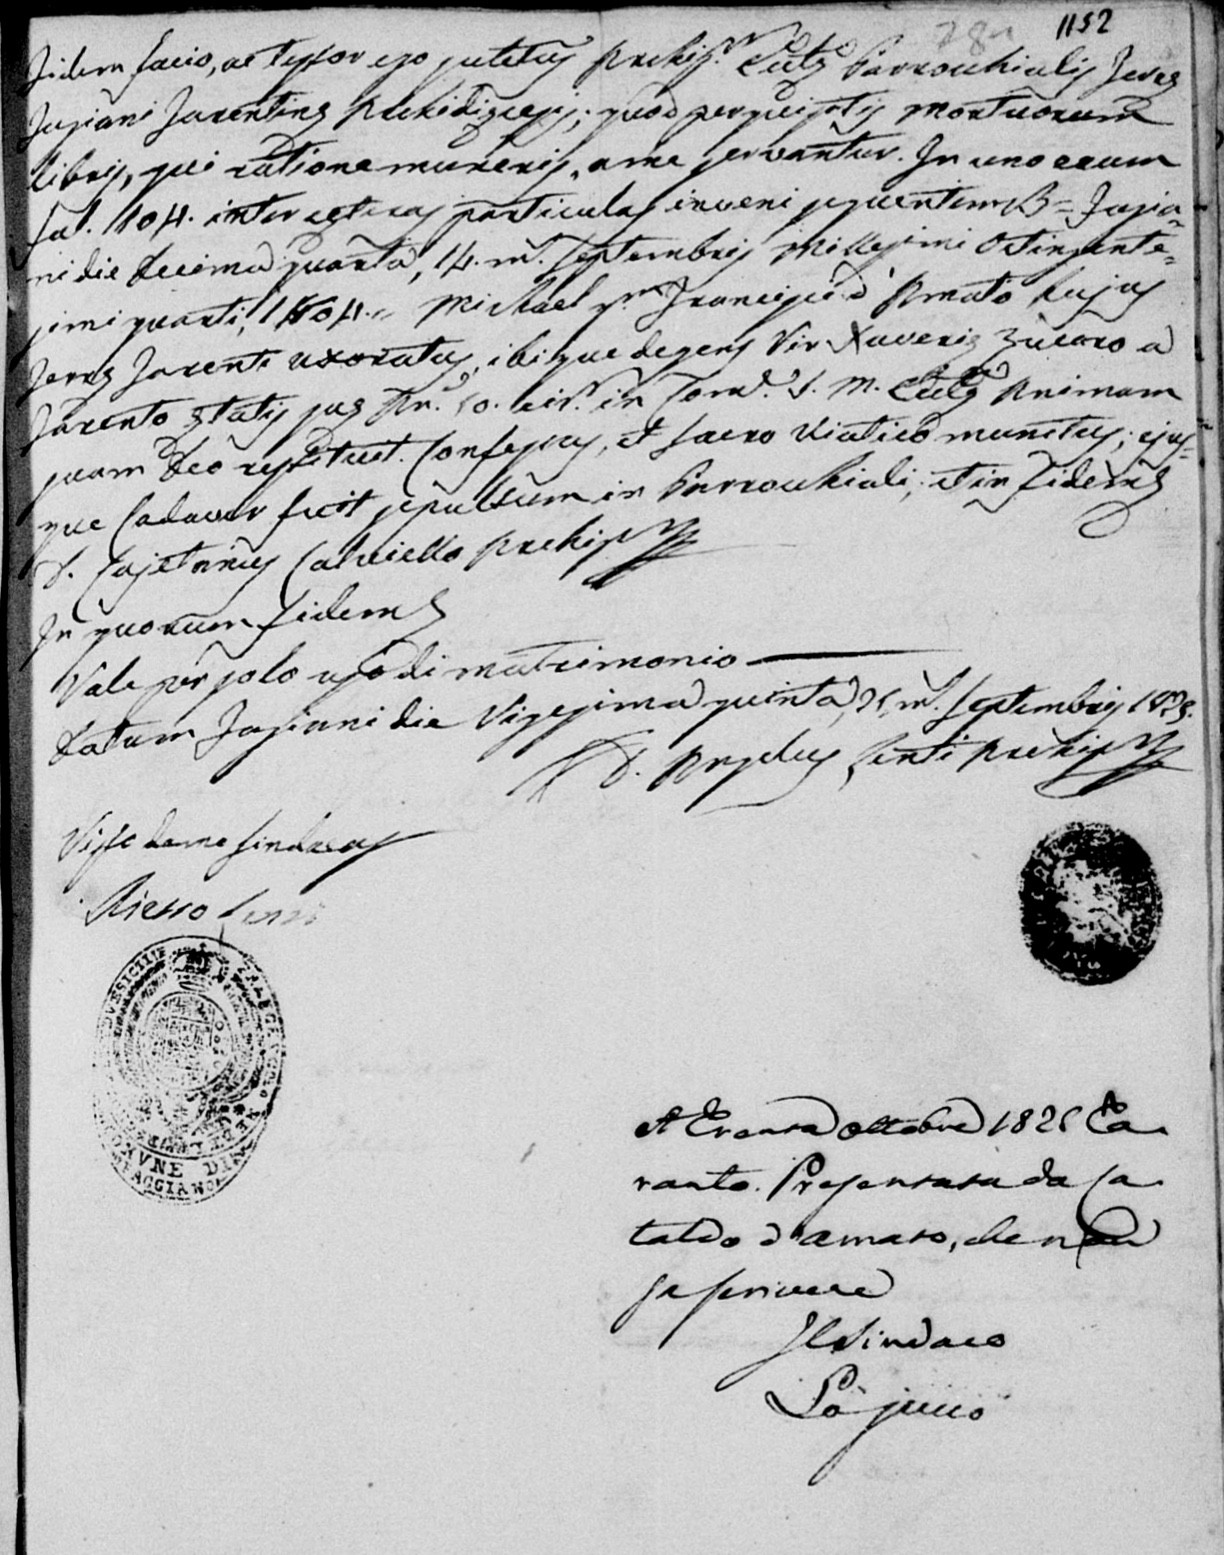 1152
Fidem facio, ac testor ego Archip.r Eccl.æ Parrochialis Terræ
Fagiani Tarentinæ Archidiæcesis; quod perquisitis mortuorum
libris, qui ratione muneris, a me servantur. In uno eorum
fol. 104. inter ceteras particulas inveni sequentem = Fagia=
ni die decima quarta, 14. m. Septembris Millesimi Octingente=
simi quarti, 1804. = Michael q.m Francisci d'Amato hujus
Terræ Tarenti uxoratus, ibique degens Vir Xaveriæ Zucaro a
Tarento ætatis suæ An. 50. cir. in Com. S. M. Eccl.æ Animam
suam Deo restituit. Confessus, et sacro Viatico munitus; ejus=
que Cadaver fuit sepultum in Parrochiali; et in fidem
D. Cajetanus Calviello Archip.r
In quorum fidem
Vale per solo uso di matrimonio
Datum Fagiani die Vigesima quinta, 25, m. Septembris 1825.
D. Angelus Lenti Archip.r
Visto da me Sindaco
Lenti
COMUNE DI
FAGGIANO
A Trenta Ottobre 1825 Ta
ranto. Presentata da Ca
taldo d'Amato, che non
sa scrivere
Il Sindaco